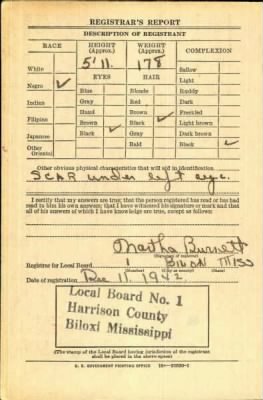 REGISTRAR'S REPORT
DESCRIPTION OF REGISTRANT
RACE
HEIGHT
(Approx.)
WEIGHT
(Approx.)
COMPLEXION
White
5' 11.
178
Sallow
EYES
HAIR
Light
Negro ✓
Blue
Blonde
Ruddy
Indian
Gray
Red
Dark
Hazel
Brown
Freckled
Filipino
Brown
Black ✓
Light brown
Japanese
Black ✓
Gray
Dark brown
Other
Oriental
Bald
Black ✓
Other obvious physical characteristics that will aid in identification
SCAR under left eye.
I certify that my answers are true; that the person registered has read or has had
read to him his own answers; that I have witnessed his signature or mark and that
all of his answers of which I have knowledge are true, except as follows:
Martha Burnett
Registrar for Local Board 1 Biloxi Miss
Date of registration Dec 11, 1942
Local Board No. 1
Harrison County
Biloxi Mississippi
(The stamp of the Local Board having jurisdiction of the registrant
shall be placed in the above space.)
U. S. GOVERNMENT PRINTING OFFICE